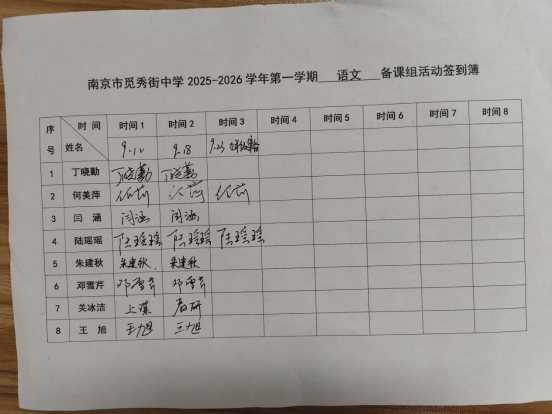 南京市觅秀街中学 2025-2026 学年第一学期 语文 备课组活动签到簿
序号 时间 姓名 时间 1 时间 2 时间 3 时间 4 时间 5 时间 6 时间 7 时间 8
9.12 9.18 9.25
1 丁晓勤 丁晓勤 丁晓勤
2 何美萍
3 闫 涵 闫涵 闫涵
4 陆瑶瑶 陆瑶瑶 陆瑶瑶 陆瑶瑶
5 朱建秋 朱建秋 朱建秋
6 邓雪芹 邓雪芹 邓雪芹
7 关冰洁 上课 教研
8 王 旭 王旭 王旭